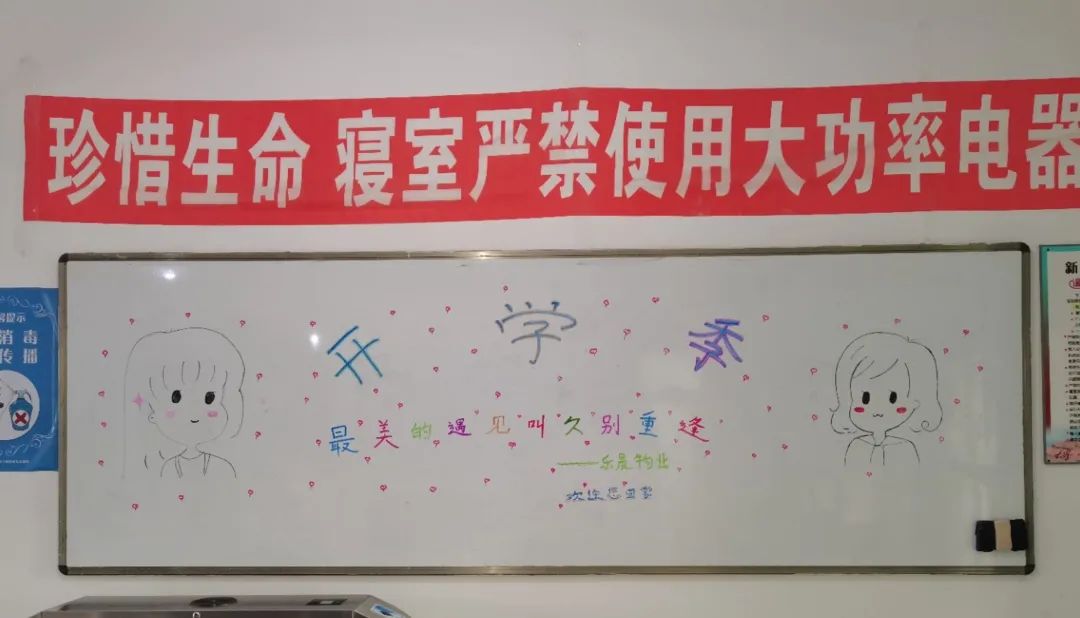 珍惜生命 寝室严禁使用大功率电器
开学季
最美的遇见叫久别重逢
——乐晟物业
欢迎您回家
消毒
传播
新